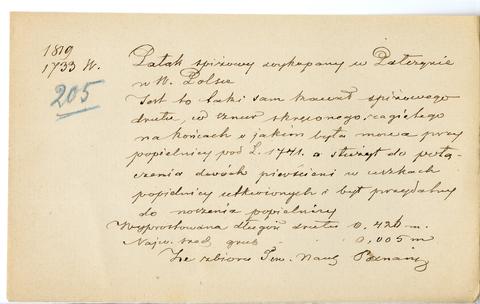 1819
1733 N.
205
Pałak spiżowy wykopany w
w W. Polsce
Jest to taki sam kawał spiżowego
drutu, w sznur skręconego, zagiętego
na końcach o jakim była mowa przy
popielnicy pod L. 1741. a służył do połą-
czenia dwóch pierścieni w uszkach
popielnicy utkwionych i był przydatny
do noszenia popielnicy
Wyprostowana długość drutu 0,426 m.
Najw. śred. grub. 0,005 m
Ze zbioru Tow. Nauk